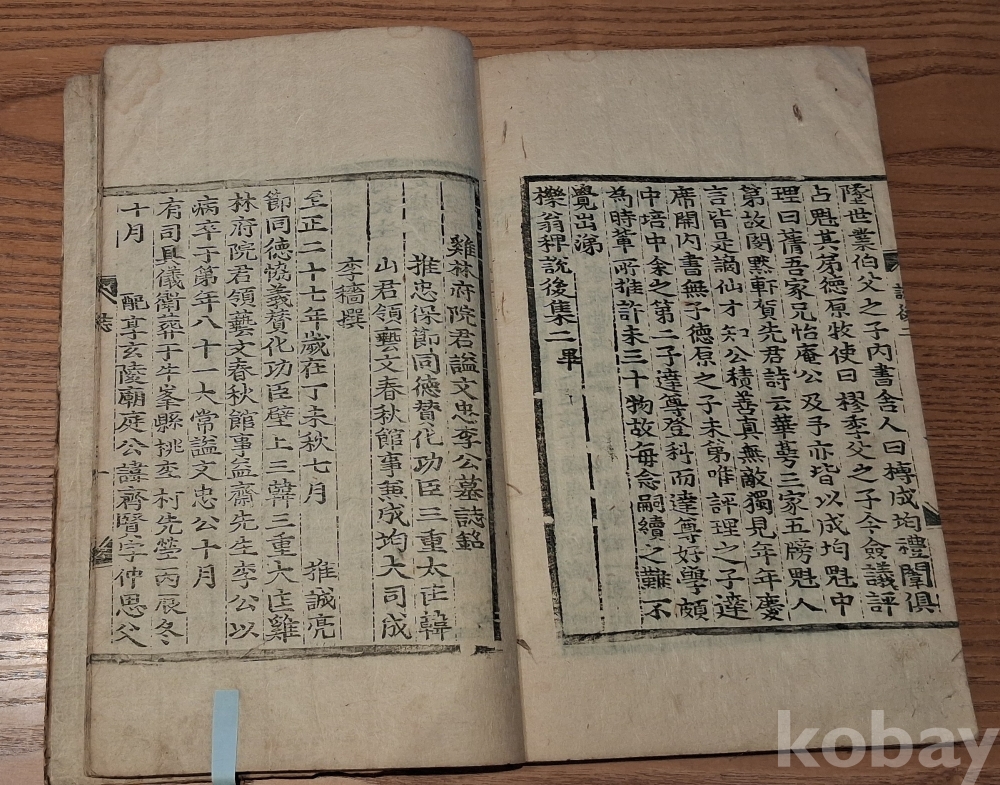 陞世業伯父之子內書舍人曰𫝊成均禮闈俱
占魁其弟德原牧使曰樛季父之子今僉議評
理曰蒨吾家兄怡庵公及予亦皆以成均魁中
第故閔默軒賀先君詩云華萼三家五牓魁人
言皆是謫仙才知公積善眞無敵獨見年年慶
席開內書無子德原之子未第唯評理之子達
中培中余之第二子達尊登科而達尊好學頗
爲時輩所推許未三十物故每念嗣續之難不
覺出涕
櫟翁稗說後集二畢
雞林府院君謚文忠李公墓誌銘
推忠保節同德贊化功臣三重大匡韓
山君領藝文春秋館事兼成均大司成
李穡撰
至正二十七年歲在丁未秋七月 推誠亮
節同德協義贊化功臣壁上三韓三重大匡雞
林府院君領藝文春秋館事益齋先生李公以
病卒于第年八十一大常謚文忠公十月
有司具儀衛葬于牛峯縣桃李村先塋丙辰冬
十月 配享玄陵廟庭公諱齊賢字仲思父
誌
kobay